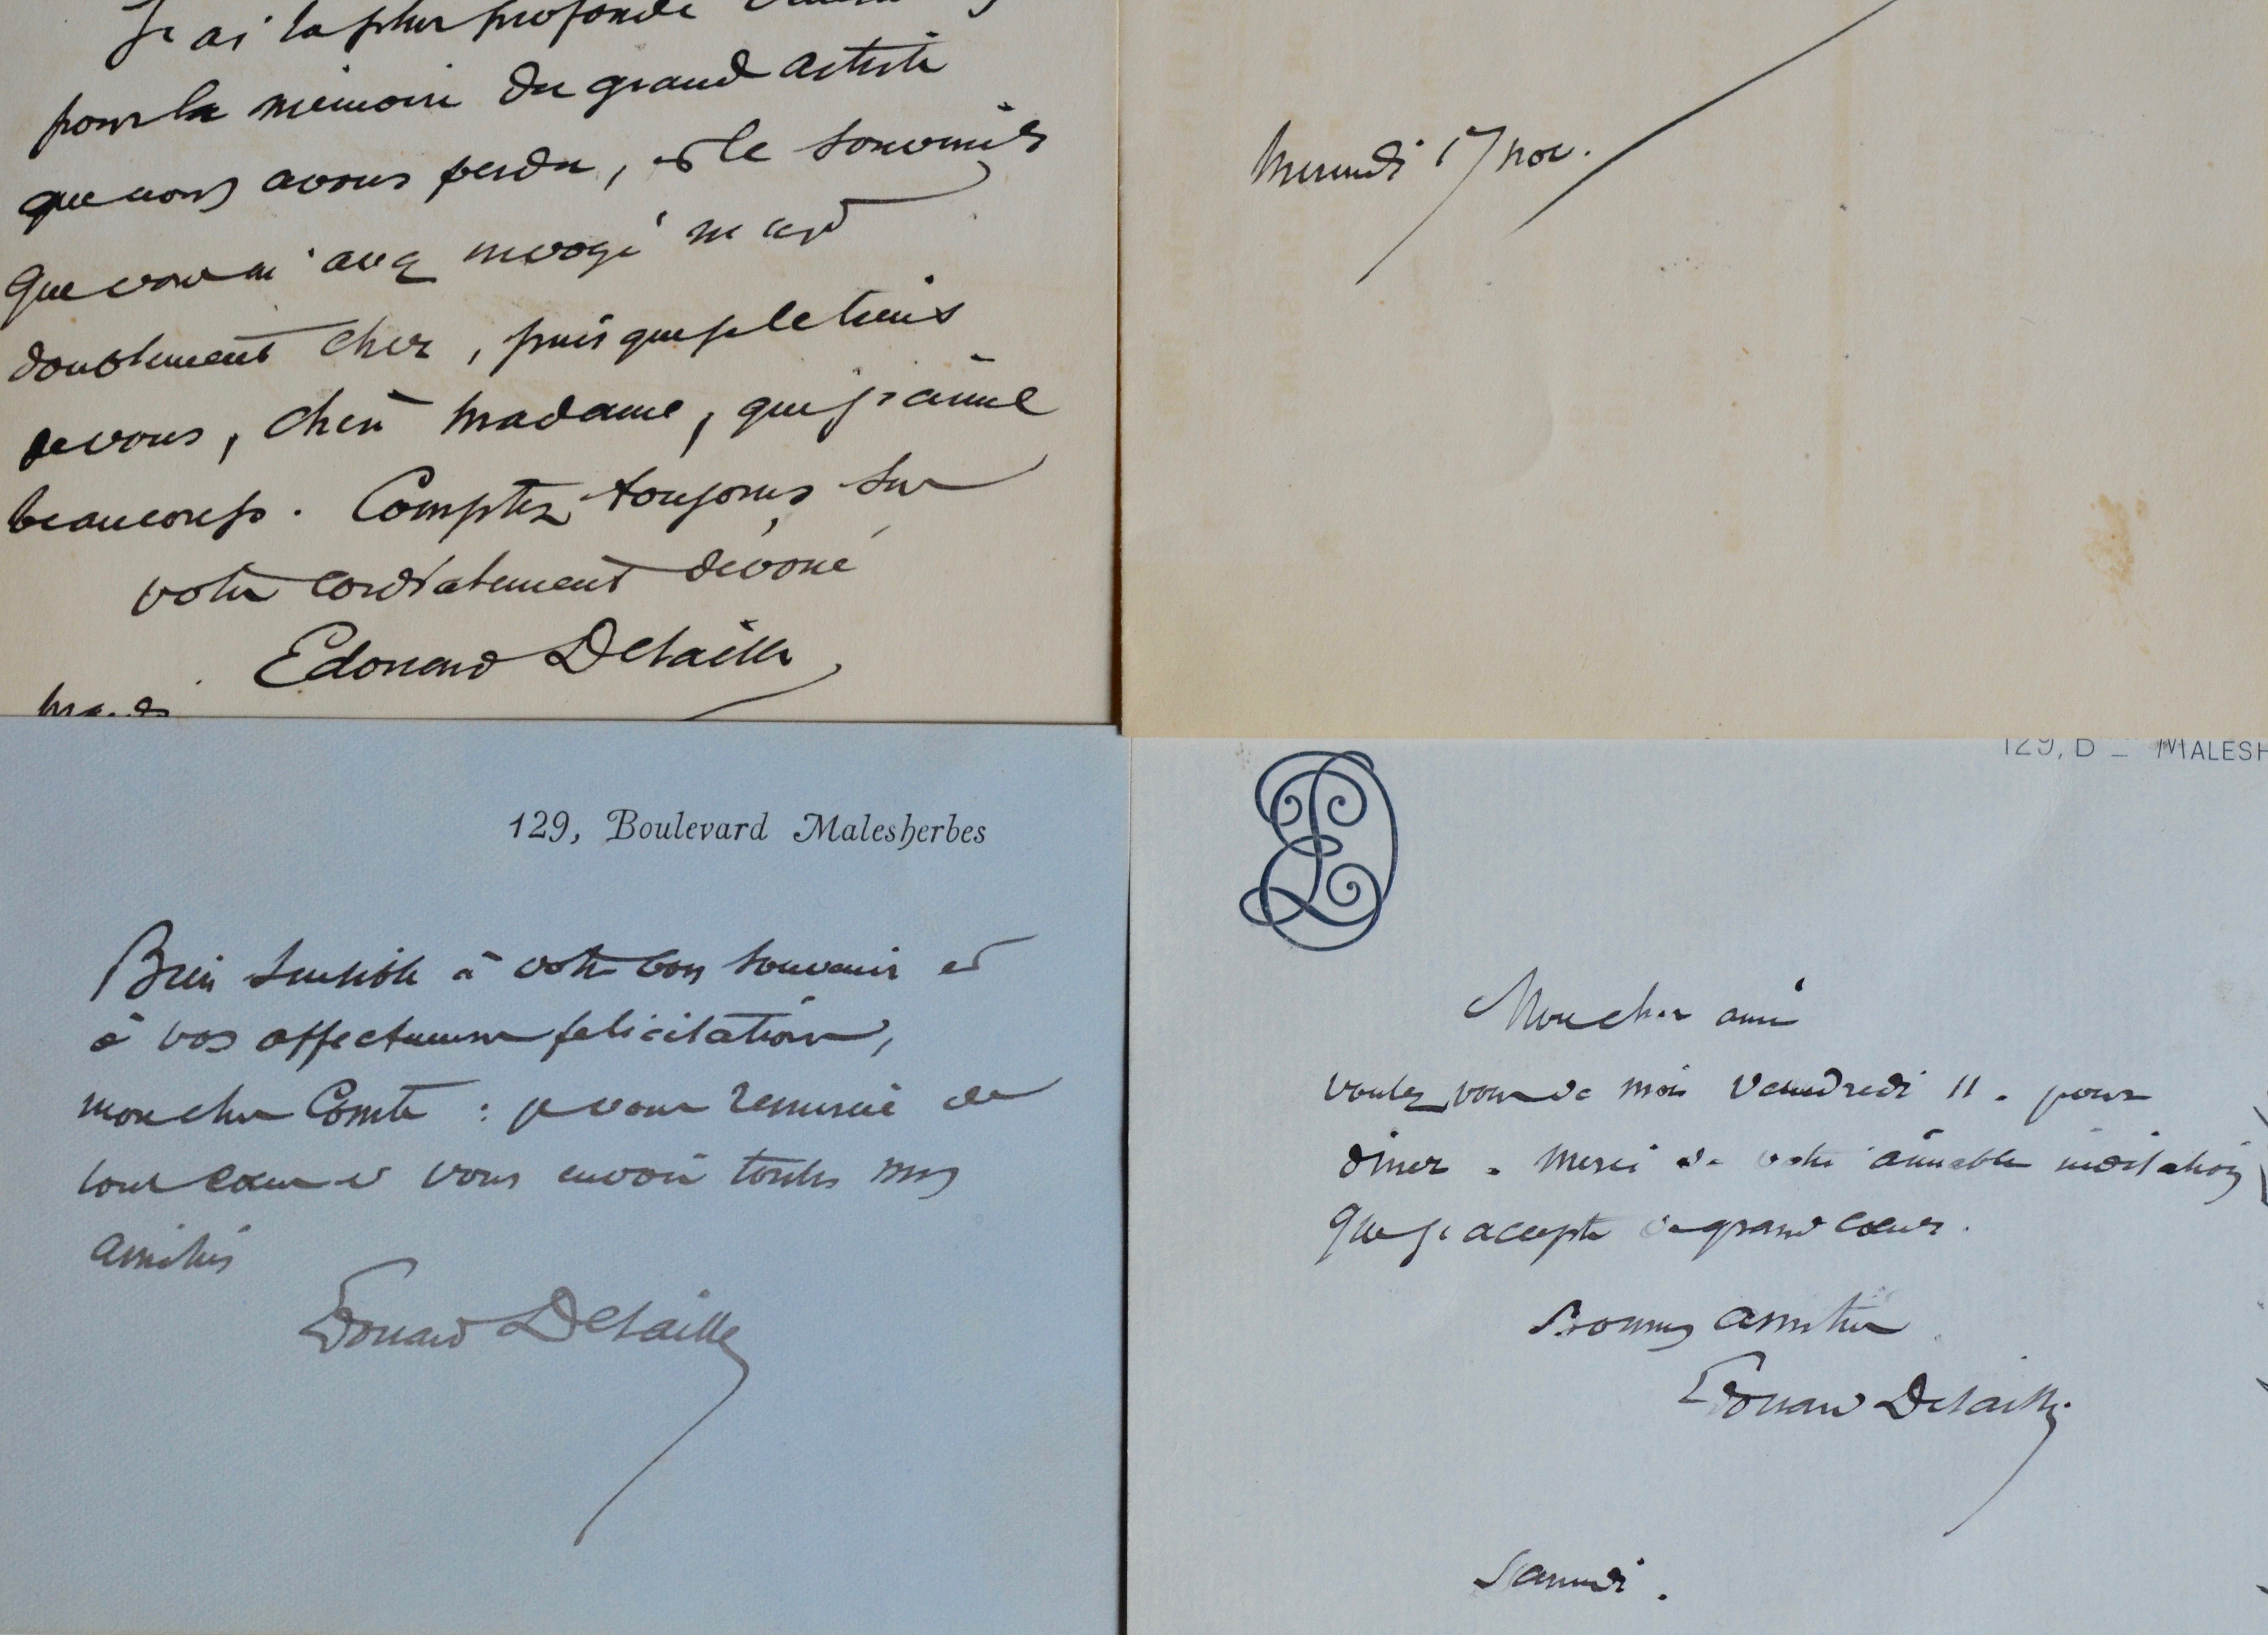 J'ai la plus profonde
pour la mémoire du grand artiste
que nous avons perdu, et le souvenir
que vous m'avez envoyé m'est
doublement cher, puisque je le tiens
de vous, chère Madame, que j'aime
beaucoup. Comptez toujours sur
votre cordialement dévoué
Edouard Detaille
Mardi
Mercredi 17 nov.
129, Boulevard Malesherbes
Bien sensible à votre bon souvenir et
à vos affectueuses felicitations,
mon cher Comte : je vous remercie de
tout coeur et vous envoie toutes mes
amitiés
Edouard Detaille
129, Bd MALESH
Mon cher ami
Voulez vous de moi Vendredi 11 . pour
diner . Merci de votre aimable invitation
que j'accepte de grand coeur.
Bonnes amitiés
Edouard Detaille.
Samedi .